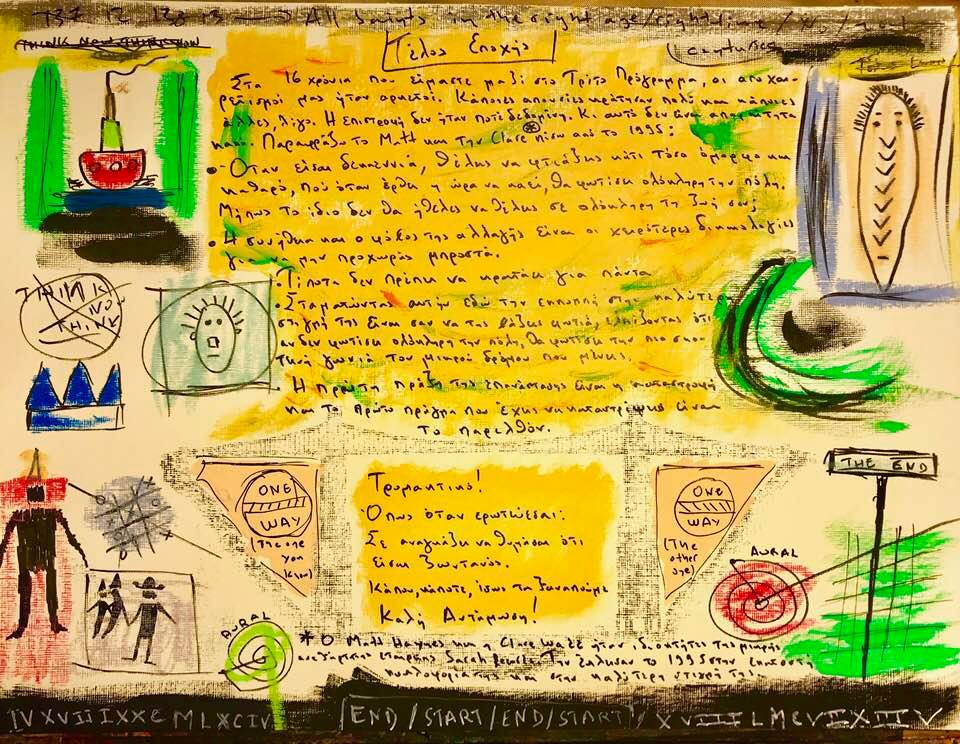 All Saints in the right age/right time
THINK NOW THINK NOW
Τέλος Εποχής
centuries
Στα 16 χρόνια που είμαστε μαζί στο Τρίτο Πρόγραμμα, οι αποχαι-
ρετισμοί μας ήταν αρκετοί. Κάποιες απουσίες κράτησαν πολύ και κάποιες
άλλες, λίγο. Η επιστροφή δεν ήταν ποτέ δεδομένη. Κι αυτό δεν είναι απαραίτητα
κακό. Παραφράζω το Matt και την Clare * πίσω από το 1995:
• Όταν είσαι δεκαεννιά, θέλεις να φτιάξεις κάτι τόσο όμορφο και
καθαρό, που όταν έρθει η ώρα να καεί, θα φωτίσει ολόκληρη την πόλη.
Μήπως το ίδιο δεν θα ήθελες να θέλεις σε ολόκληρη τη ζωή σου;
• Η συνήθεια και ο φόβος της αλλαγής είναι οι χειρότερες δικαιολογίες
για να μην προχωράς μπροστά.
• Τίποτα δεν πρέπει να κρατάει για πάντα
• Σταματώντας αυτήν εδώ την εκπομπή στην καλύτερη
στιγμή της είναι σαν να της βάζεις φωτιά, ελπίζοντας ότι
αν δεν φωτίσει ολόκληρη την πόλη, θα φωτίσει την πιο σκο-
τεινή γωνιά του μικρού δρόμου που μένεις.
• Η πρώτη πράξη της επανάστασης είναι η καταστροφή
και το πρώτο πράγμα που έχεις να καταστρέψεις είναι
το παρελθόν.
THINK NOW THINK
ONE WAY
(The one you know)
Τρομαντικό!
Όπως όταν ερωτεύεσαι:
Σε αναγκάζει να θυμάσαι ότι
είσαι ζωντανός.
Κάπου, κάποτε, ίσως τα ξαναπούμε
Καλή Αντάμωση!
ONE WAY
(The other age)
THE END
AURAL
AURAL
* Ο Matt Haynes και η Clare Wadd ήταν ιδιοκτήτες της μικρής
ανεξάρτητης εταιρίας Sarah Records. Την έκλεισαν το 1995 στην εκατοστή
κυκλοφορία της και στην καλύτερη στιγμή της.
IV XVII IXXC MLXCIV
/END/START/END/START/
XVIIILMCVIIXIIIV